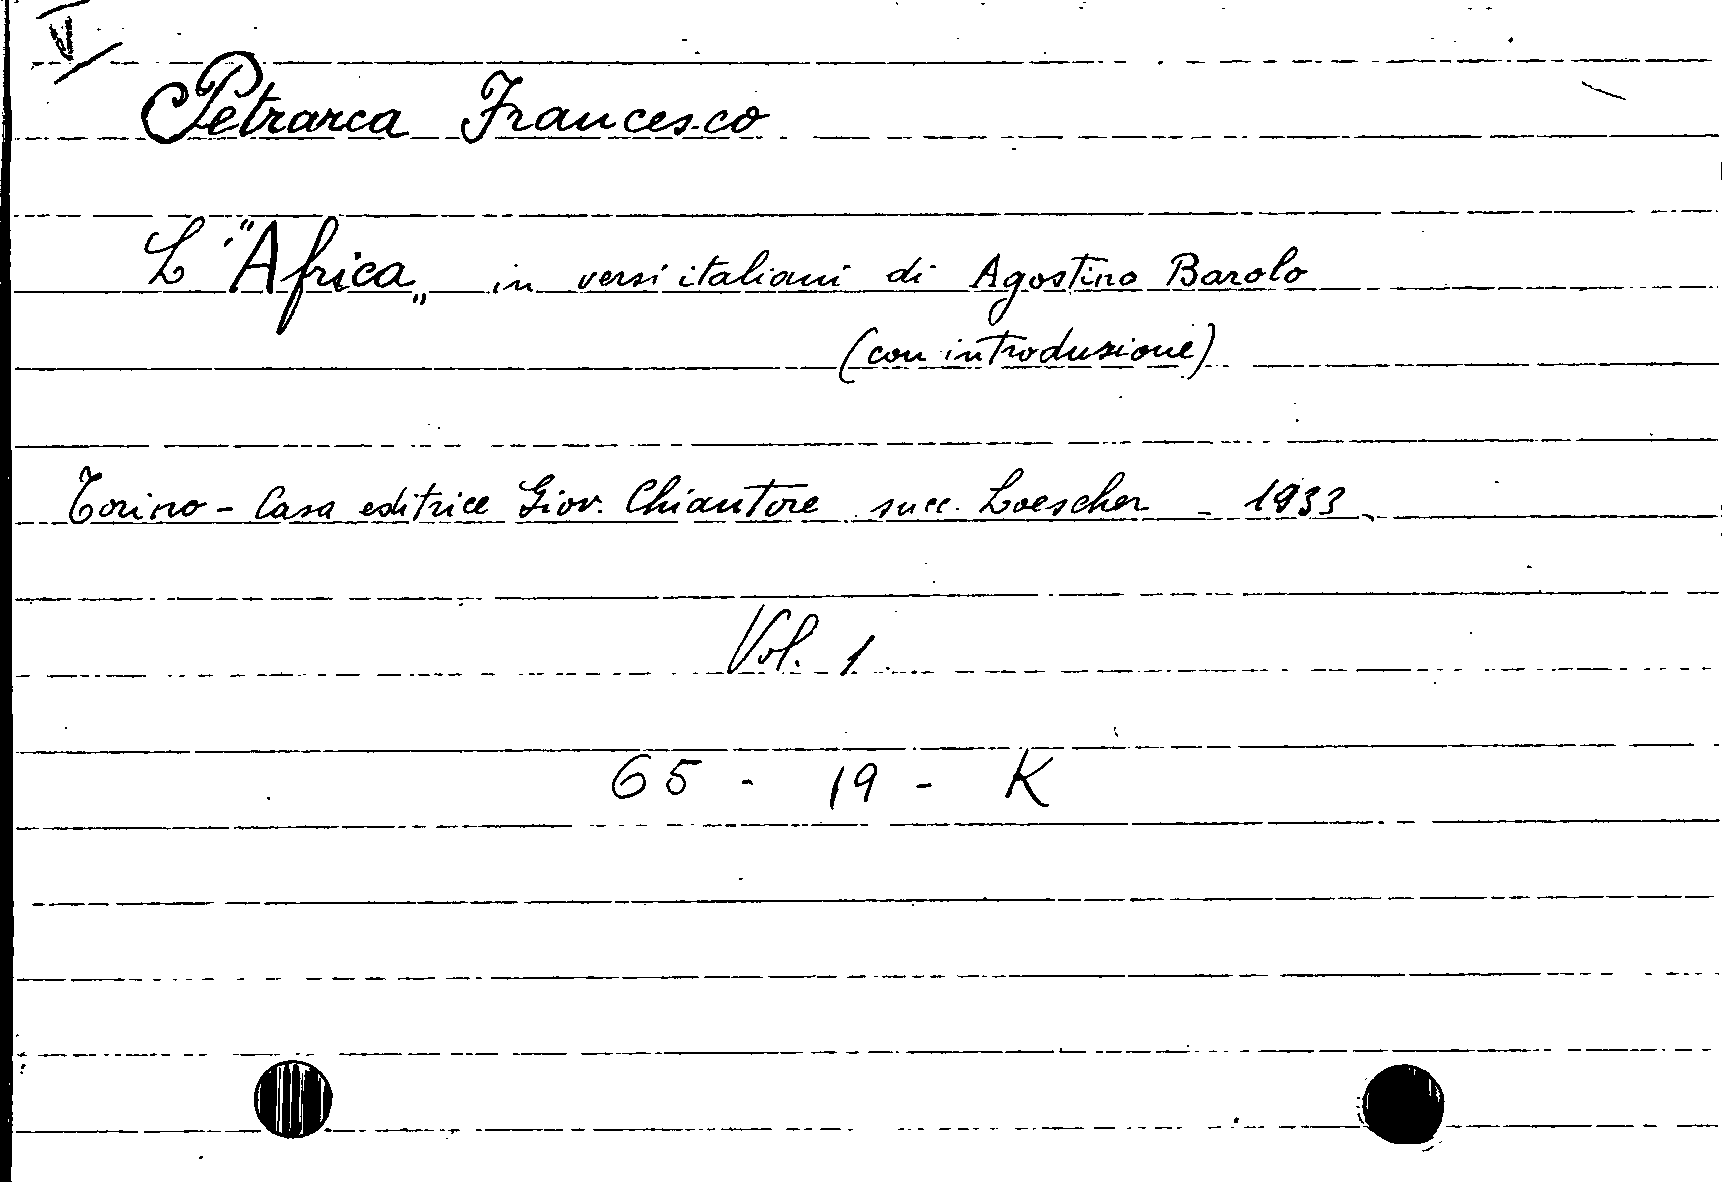 V
Petrarca Francesco
L'"Africa„ in versi italiani di Agostino Barolo
(con introduzione)
Torino - Casa editrice Giov. Chiantore succ. Loescher - 1933
Vol. 1
65 - 19 - K